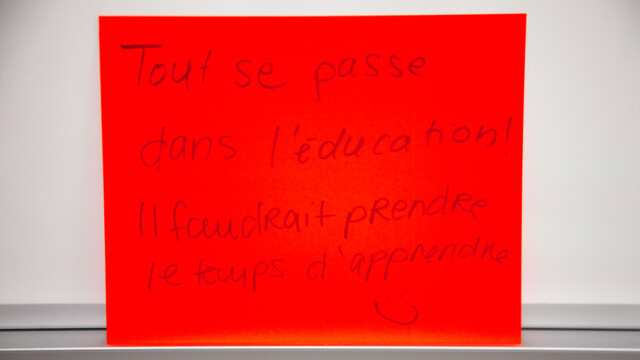 Tout se passe
dans l'éducation!
Il faudrait prendre
le temps d'apprendre.